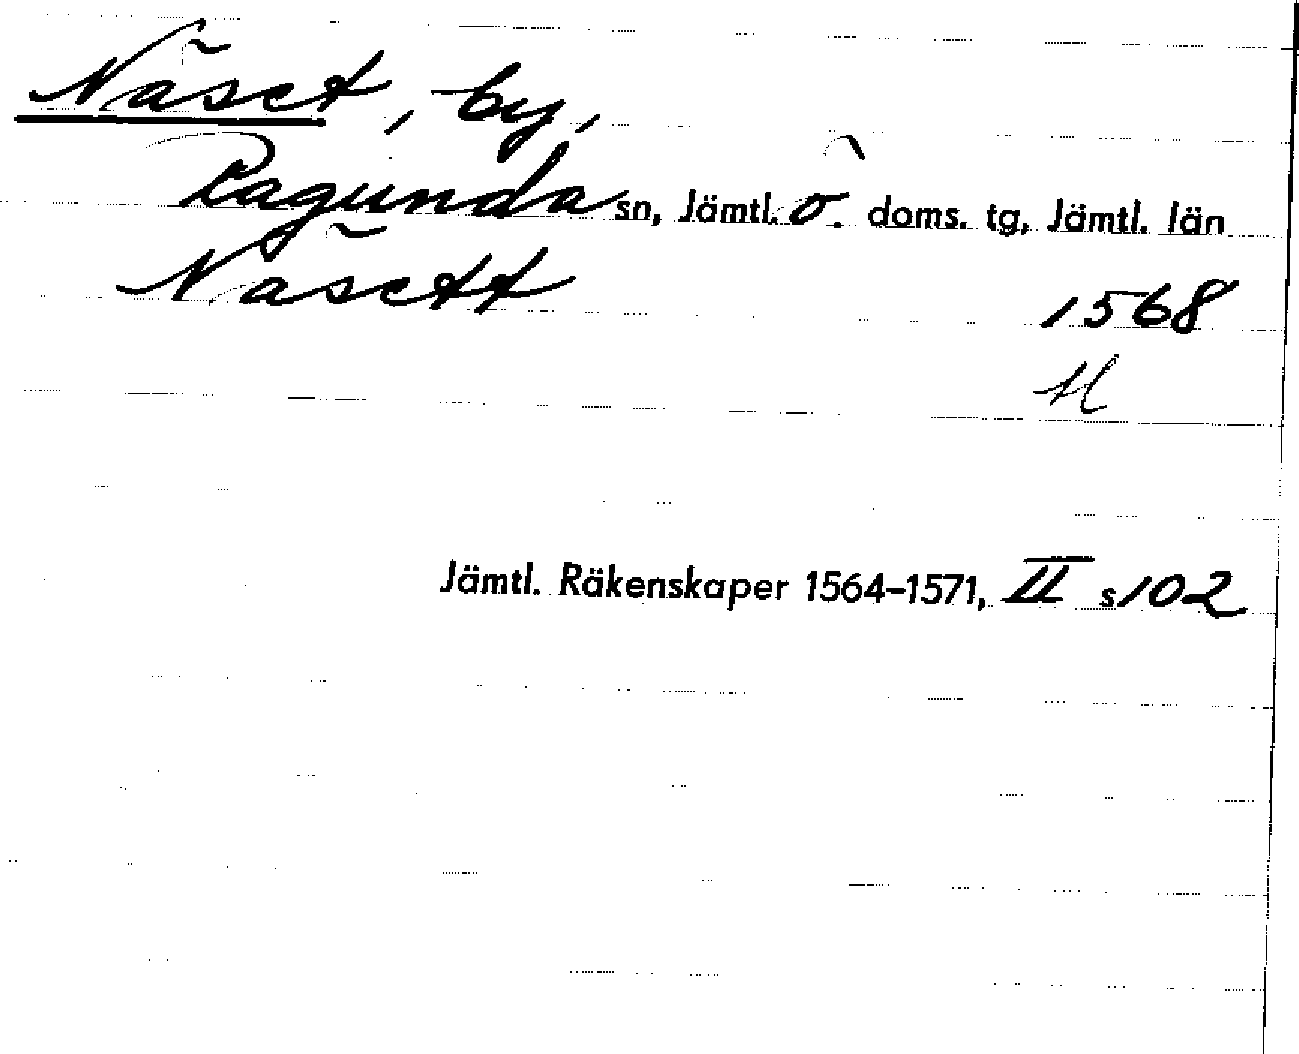 Näset, by,
Ragunda sn, Jämtl. ö. doms. tg, Jämtl. län
Näsett 1568
H
Jämtl. Räkenskaper 1564-1571, II s 102